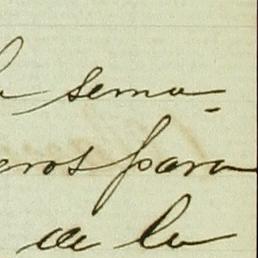 la sema-
eros para
de la